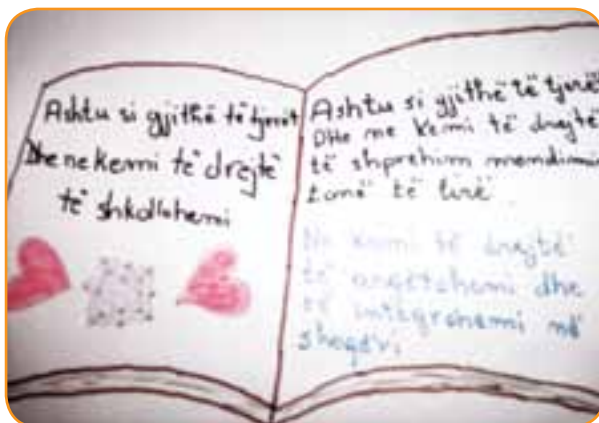 Ashtu si gjithë të tjerët
Dhe ne kemi të drejtë
të shkollohemi
Ashtu si gjithë të tjerët
Dhe ne kemi të drejtë
të shprehim mendimin
tonë të lirë.
Ne kemi të drejtë
të argëtohemi dhe
të integrohemi në
shoqëri